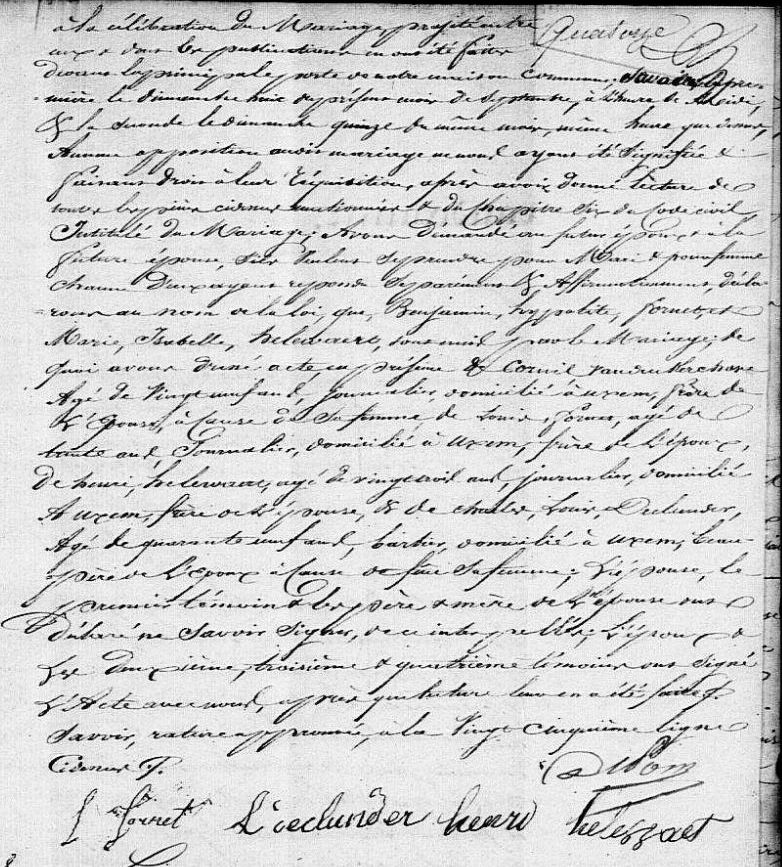 à la célébration du Mariage projeté entre
Quatorze
eux & dont les publications ont été faites
devant la principale porte de notre maison commune, Savoir, la pre-
mière le dimanche huit du présent mois de Septembre, à l'heure de Midi,
& la Seconde le dimanche quinze du même mois, même heure que dessus,
Aucune opposition audit mariage ne nous ayant été Signifiée &
faisant droit à leur Réquisition, après avoir donné lecture de
toutes les pièces ci dessus mentionnées & du Chapitre Six du Code civil,
Intitulé du Mariage; Avons Demandé au futur époux & à la
future épouse, S'ils Veulent Se prendre pour Mari & pour femme
chacun D'eux ayant répondu Séparément & Affirmativement, décla-
rons au nom de la loi, que, Benjamin, hypolite, fornet, et
Marie, Isabelle, helewaert, sont unis par le Mariage; de
quoi avons dressé acte, en présence de Cornil vanden kerchove
Agé de Vingt neuf ans, Journalier, domicilié à uxem, frère de
L'épouse, à Cause de Sa femme, de Louis, fornet, agé de
trente ans Journalier, domicilié à uxem, frère de L'époux,
de henri, helewaert, agé de vingt trois ans, journalier, domicilié
A uxem, frère de L'épouse, & de charles, Louis, Declunder,
Agé de quarante neuf ans, barbier, domicilié à uxem, beau
père de L'époux à Cause de Sa femme; L'épouse, le
premier témoin & les père & mère de L'épouse ont
Déclaré ne Savoir Signer, de ce interpellés; L'époux &
Les deuxième, troisième & quatrième témoins ont Signé
L'Acte avec nous, après que lecture leur en a été faite
Savoir, rature approuvée, à la Vingt cinquième ligne
Ci dessus
fornet L Declunder henri helewaet